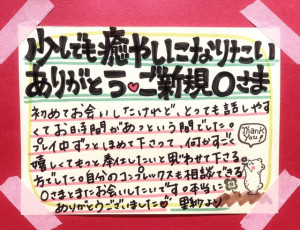 少しでも癒やしになりたい
ありがとう♥ご新規Oさま
初めてお会いしたけれど、とっても話しやす
くてお時間があっという間でした。
プレイ中ずっとしまめて下さって、何かすごく
嬉しくてもっと奉仕したいと思わせて下さる
方でした。自分のコンプレックスも相談できる
Oさまとまたお会いしたいです。本当に
ありがとうございました♥
里紗より
Thank
you!